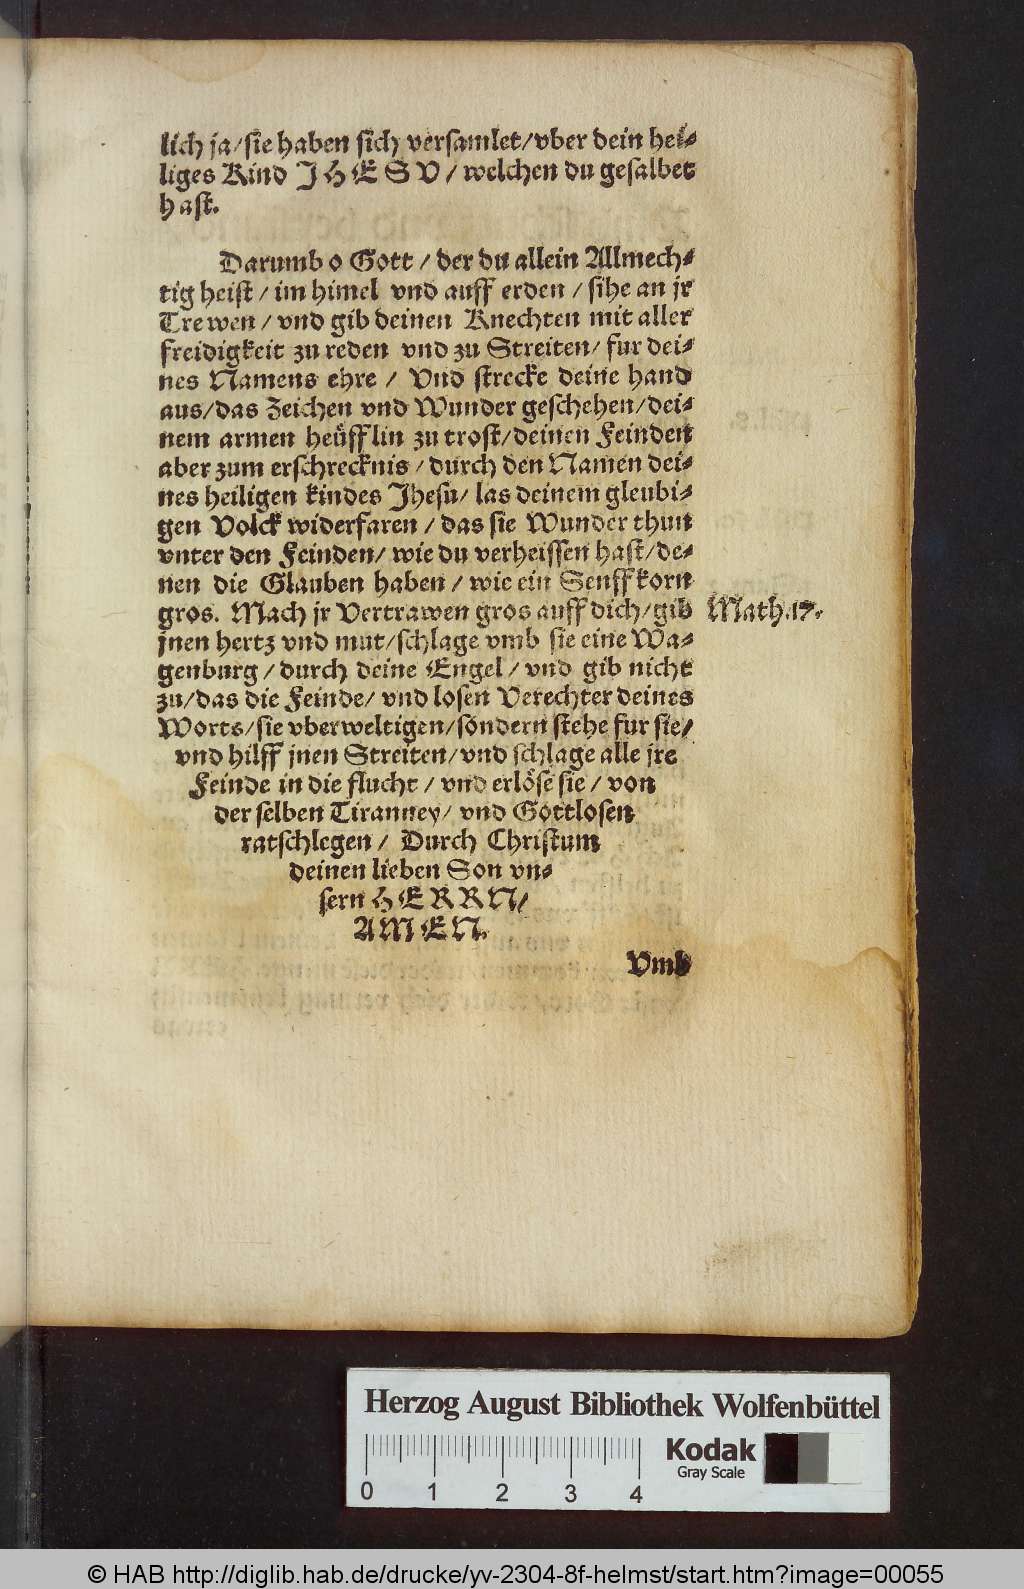 lich ja/sie haben sich versamlet/vber dein hei-
liges Kind JHESV/welchen du gesalbet
hast.
Darumb o Gott/der du allein Allmech-
tig heist/im himel vnd auff erden/sihe an jr
Trewen/vnd gib deinen Knechten mit aller
freidigkeit zu reden vnd zu Streiten/fur dei-
nes Namens ehre/Vnd strecke deine hand
aus/das Zeichen vnd Wunder geschehen/dei-
nem armen heüfflin zu trost/deinen Feinden
aber zum erschrecknis/durch den Namen dei-
nes heiligen kindes Jhesu/las deinem gleubi-
gen Volck widerfaren/das sie Wunder thun
vnter den Feinden/wie du verheissen hast/de-
nen die Glauben haben/wie ein Senffkorn
gros. Mach jr Vertrawen gros auff dich/gib
Math.17.
jnen hertz vnd mut/schlage vmb sie eine Wa-
genburg/durch deine Engel/vnd gib nicht
zu/das die Feinde/vnd losen Verechter deines
Worts/sie vberweltigen/sondern stehe fur sie/
vnd hilff jnen Streiten/vnd schlage alle jre
Feinde in die flucht/vnd erlöse sie/von
der selben Tiranney/vnd Gottlosen
ratschlegen/Durch Christum
deinen lieben Son vn-
sern HERRN/
AMEN.
Vmb
Herzog August Bibliothek Wolfenbüttel
Kodak
Gray Scale
0 1 2 3 4
© HAB http://diglib.hab.de/drucke/yv-2304-8f-helmst/start.htm?image=00055